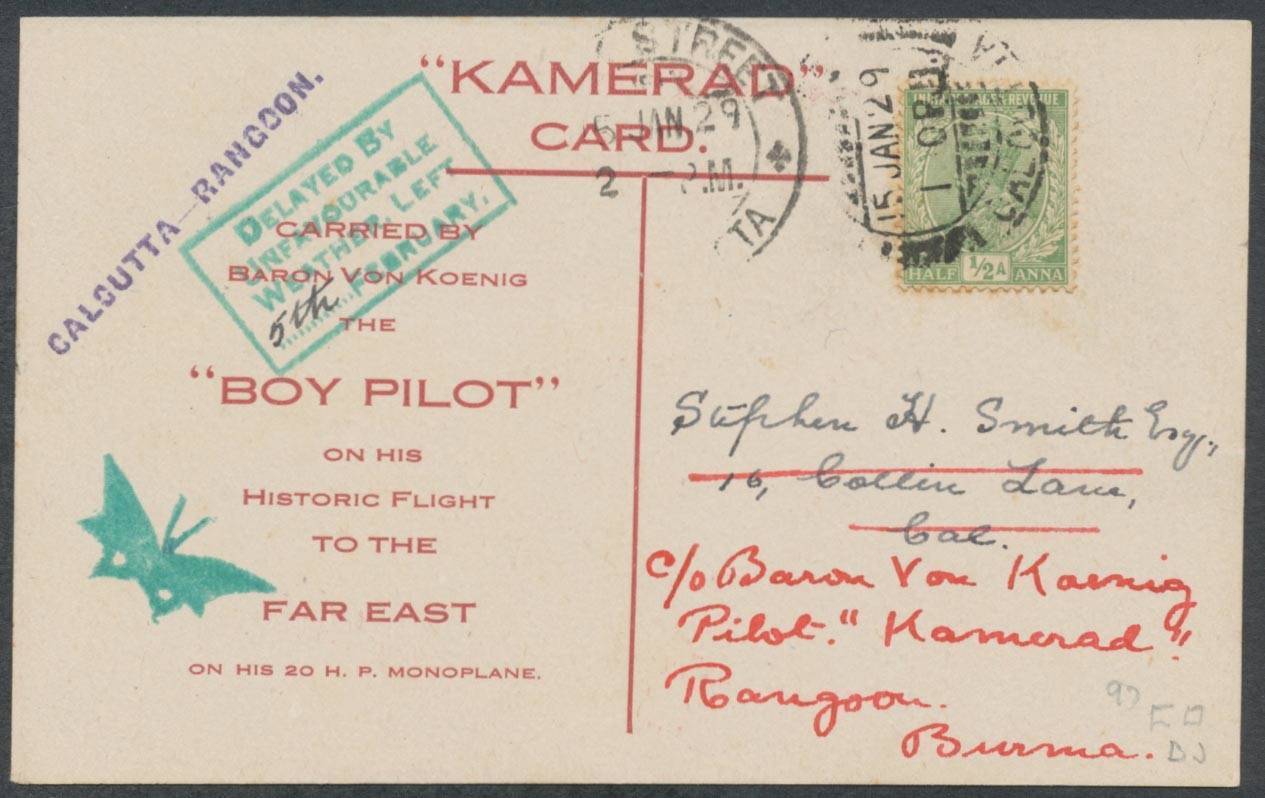 "KAMERAD"
CARD.
CALCUTTA—RANGOON.
DELAYED BY
UNFAVOURABLE
WEATHER. LEFT
5th FEBRUARY.
CARRIED BY
BARON VON KOENIG
THE
"BOY PILOT"
ON HIS
HISTORIC FLIGHT
TO THE
FAR EAST
ON HIS 20 H. P. MONOPLANE.
STREET
5 JAN 29
2 - P.M.
TA
15 JAN 29
1
REVENUE
HALF ½A ANNA
Stephen H. Smith Esq.,
16, Collin Lane,
Cal.
c/o Baron Von Koenig
Pilot. "Kamerad".
Rangoon.
Burma.